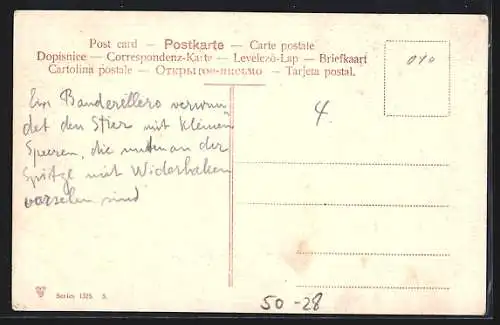 Post card — Postkarte — Carte postale
Dopisnice — Correspondenz-Karte — Levelező-Lap — Briefkaart
Cartolina postale — Открытое письмо — Tarjeta postal.
010
Ein Banderillero verwun
det den Stier mit kleinen
Speeren, die unten an der
Spitze mit Widerhaken
versehen sind
4
Series 1325. 5.
50-28